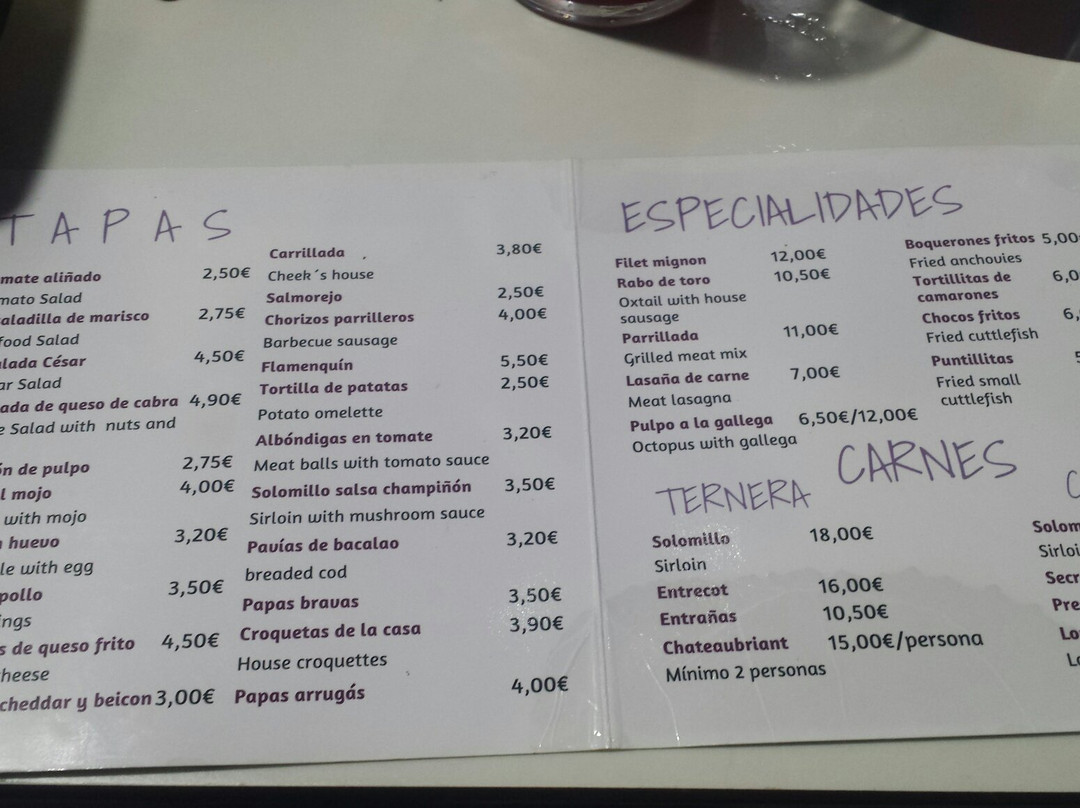 TAPAS
mate aliñado 2,50€
mato Salad
aladilla de marisco 2,75€
food Salad
lada César 4,50€
ar Salad
ada de queso de cabra 4,90€
e Salad with nuts and
ón de pulpo 2,75€
l mojo 4,00€
with mojo
huevo 3,20€
le with egg
pollo 3,50€
ings
s de queso frito 4,50€
heese
cheddar y beicon 3,00€
Carrillada 3,80€
Cheek´s house
Salmorejo 2,50€
Chorizos parrilleros 4,00€
Barbecue sausage
Flamenquín 5,50€
Tortilla de patatas 2,50€
Potato omelette
Albóndigas en tomate 3,20€
Meat balls with tomato sauce
Solomillo salsa champiñón 3,50€
Sirloin with mushroom sauce
Pavías de bacalao 3,20€
breaded cod
Papas bravas 3,50€
Croquetas de la casa 3,90€
House croquettes
Papas arrugás 4,00€
ESPECIALIDADES
Filet mignon 12,00€
Rabo de toro 10,50€
Oxtail with house
sausage
Parrillada 11,00€
Grilled meat mix
Lasaña de carne 7,00€
Meat lasagna
Pulpo a la gallega 6,50€/12,00€
Octopus with gallega
Boquerones fritos 5,00
Fried anchouies
Tortillitas de 6,0
camarones
Chocos fritos 6,
Fried cuttlefish
Puntillitas
Fried small
cuttlefish
CARNES
TERNERA
Solomillo 18,00€
Sirloin
Entrecot 16,00€
Entrañas 10,50€
Chateaubriant 15,00€/persona
Mínimo 2 personas
Solom
Sirloi
Secr
Pre
Lo